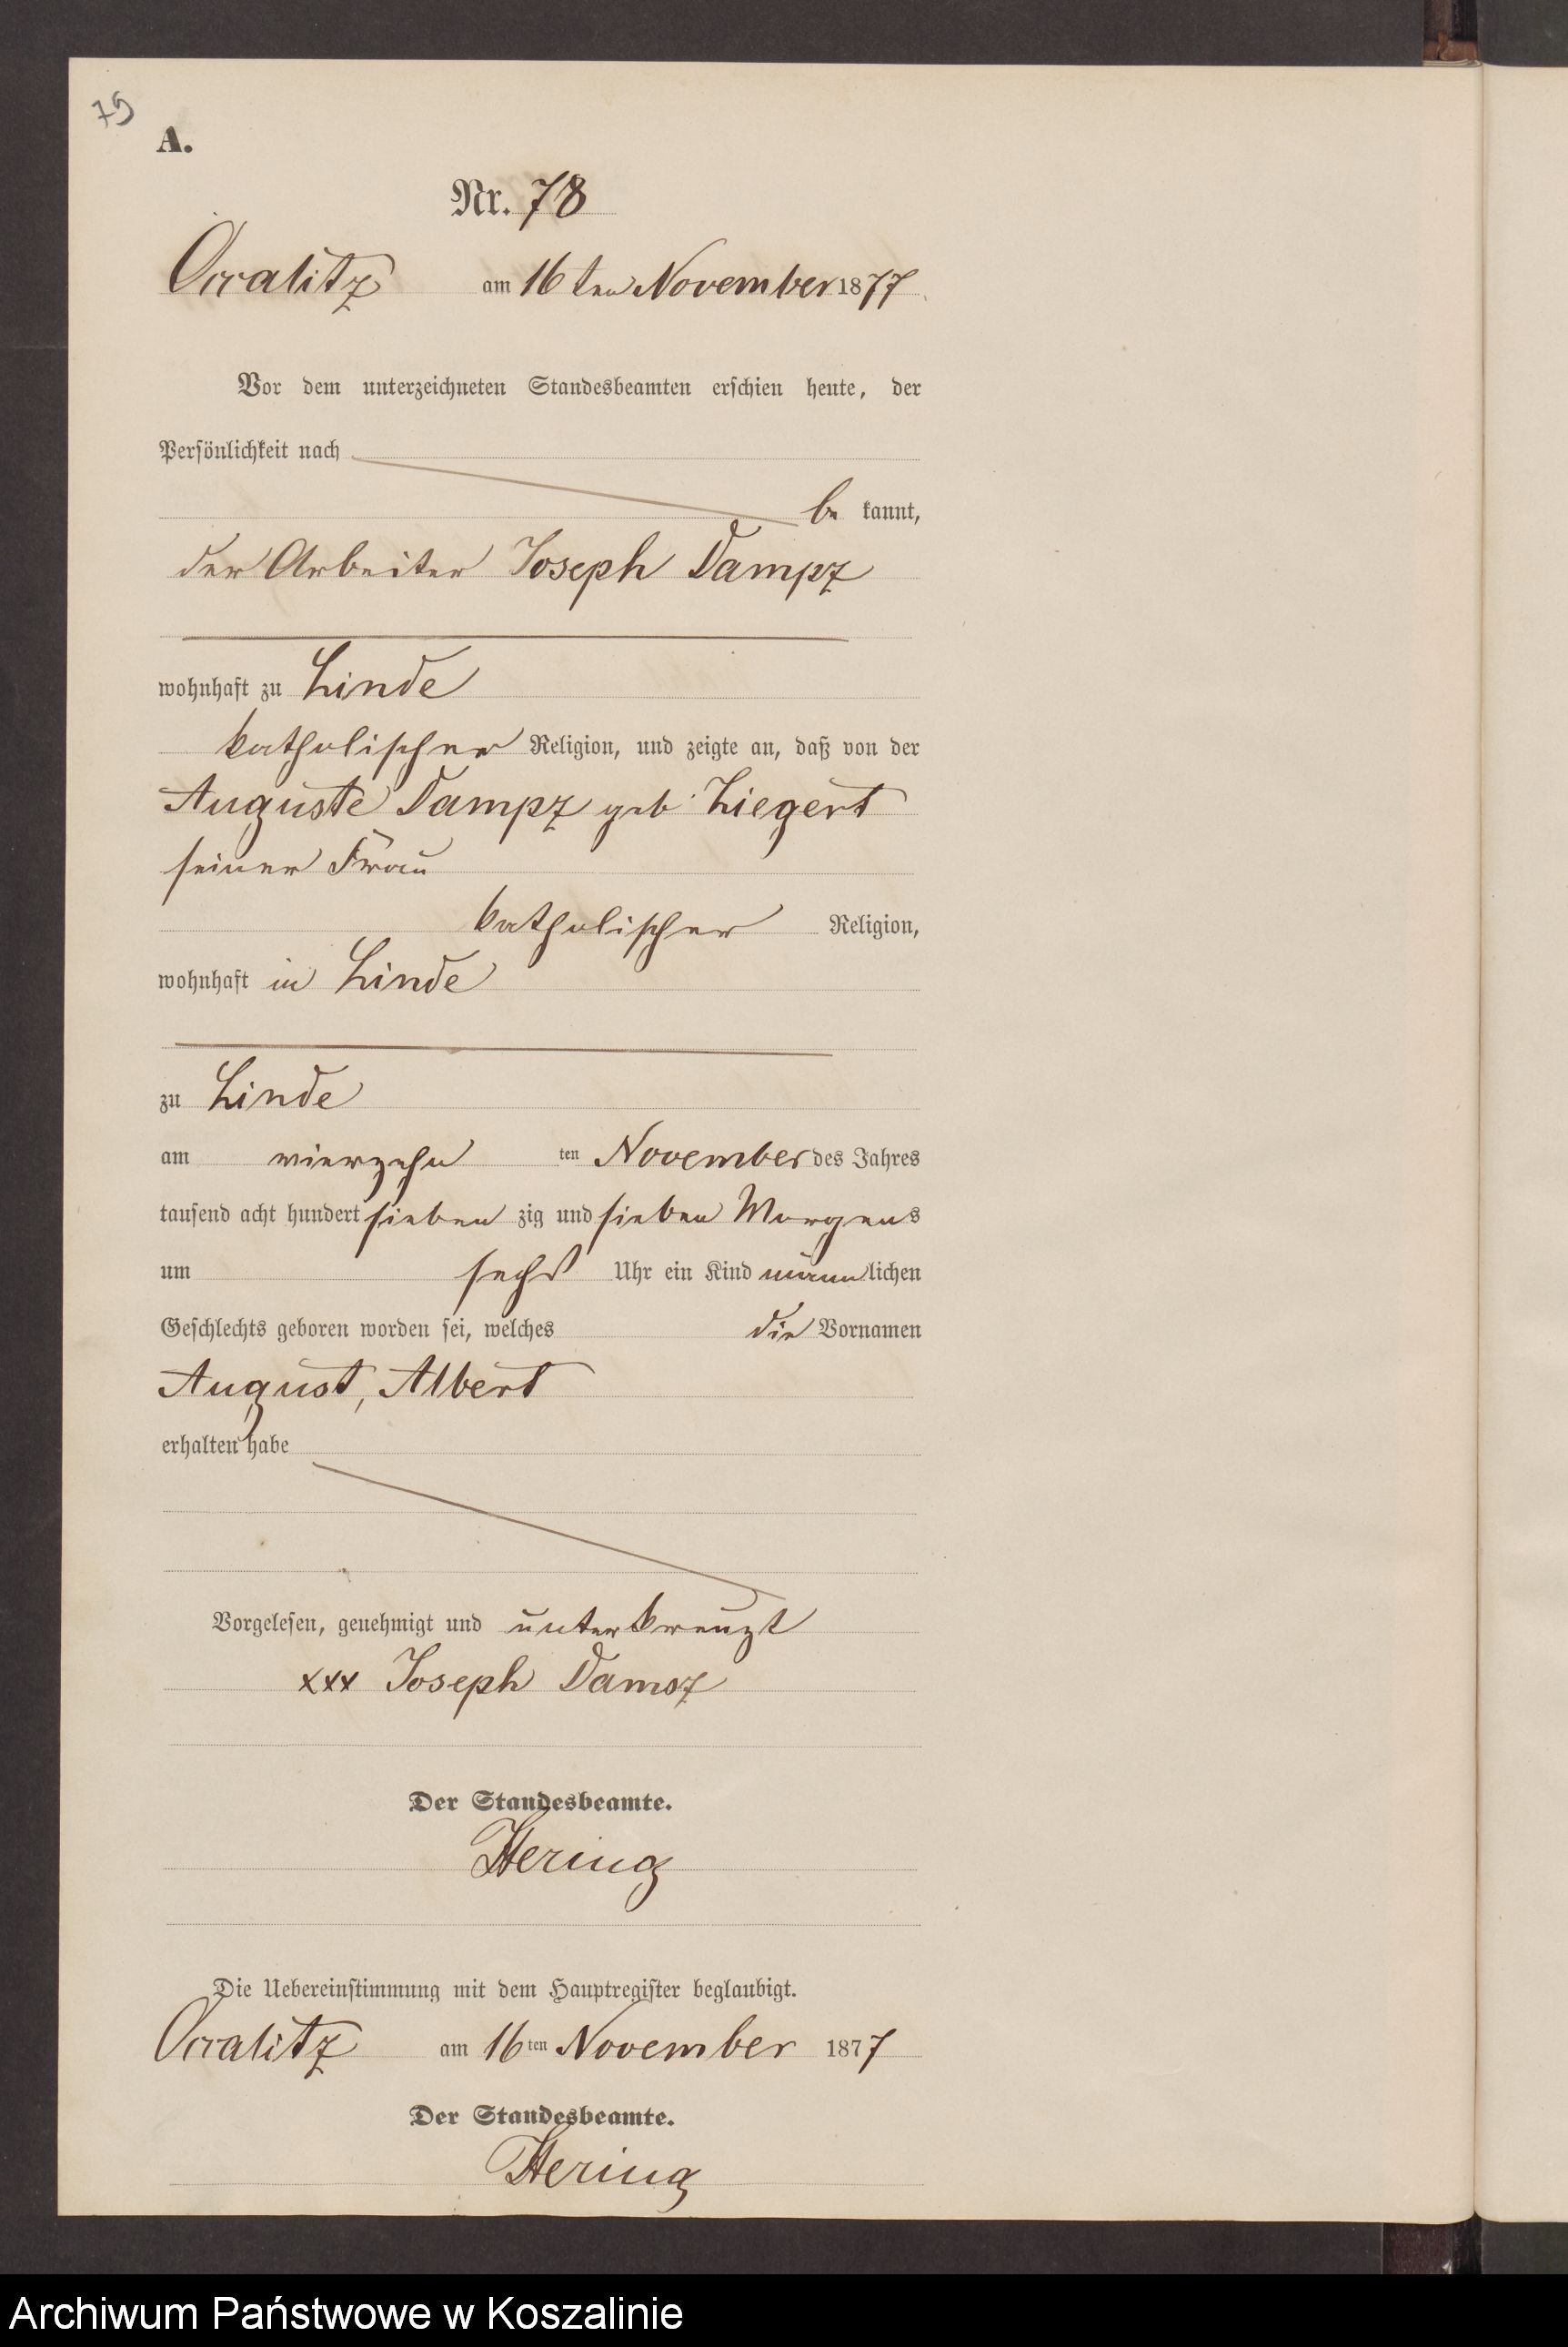 79
A.
Nr. 78
Occalitz am 16ten November 1877
Vor dem unterzeichneten Standesbeamten erschien heute, der
Persönlichkeit nach
be kannt,
der Arbeiter Joseph Dampz
wohnhaft zu Linde
katholischer Religion, und zeigte an, daß von der
Auguste Dampz geb. Liegert
seiner Frau
katholischer Religion,
wohnhaft in Linde
zu Linde
am vierzehn ten November des Jahres
tausend acht hundert sieben zig und sieben Morgens
um sechs Uhr ein Kind männlichen
Geschlechts geboren worden sei, welches die Vornamen
August, Albert
erhalten habe
Vorgelesen, genehmigt und unterkreuzt
xxx Joseph Damoz
Der Standesbeamte.
Hering
Die Uebereinstimmung mit dem Hauptregister beglaubigt.
Occalitz am 16ten November 1877
Der Standesbeamte.
Hering
Archiwum Państwowe w Koszalinie